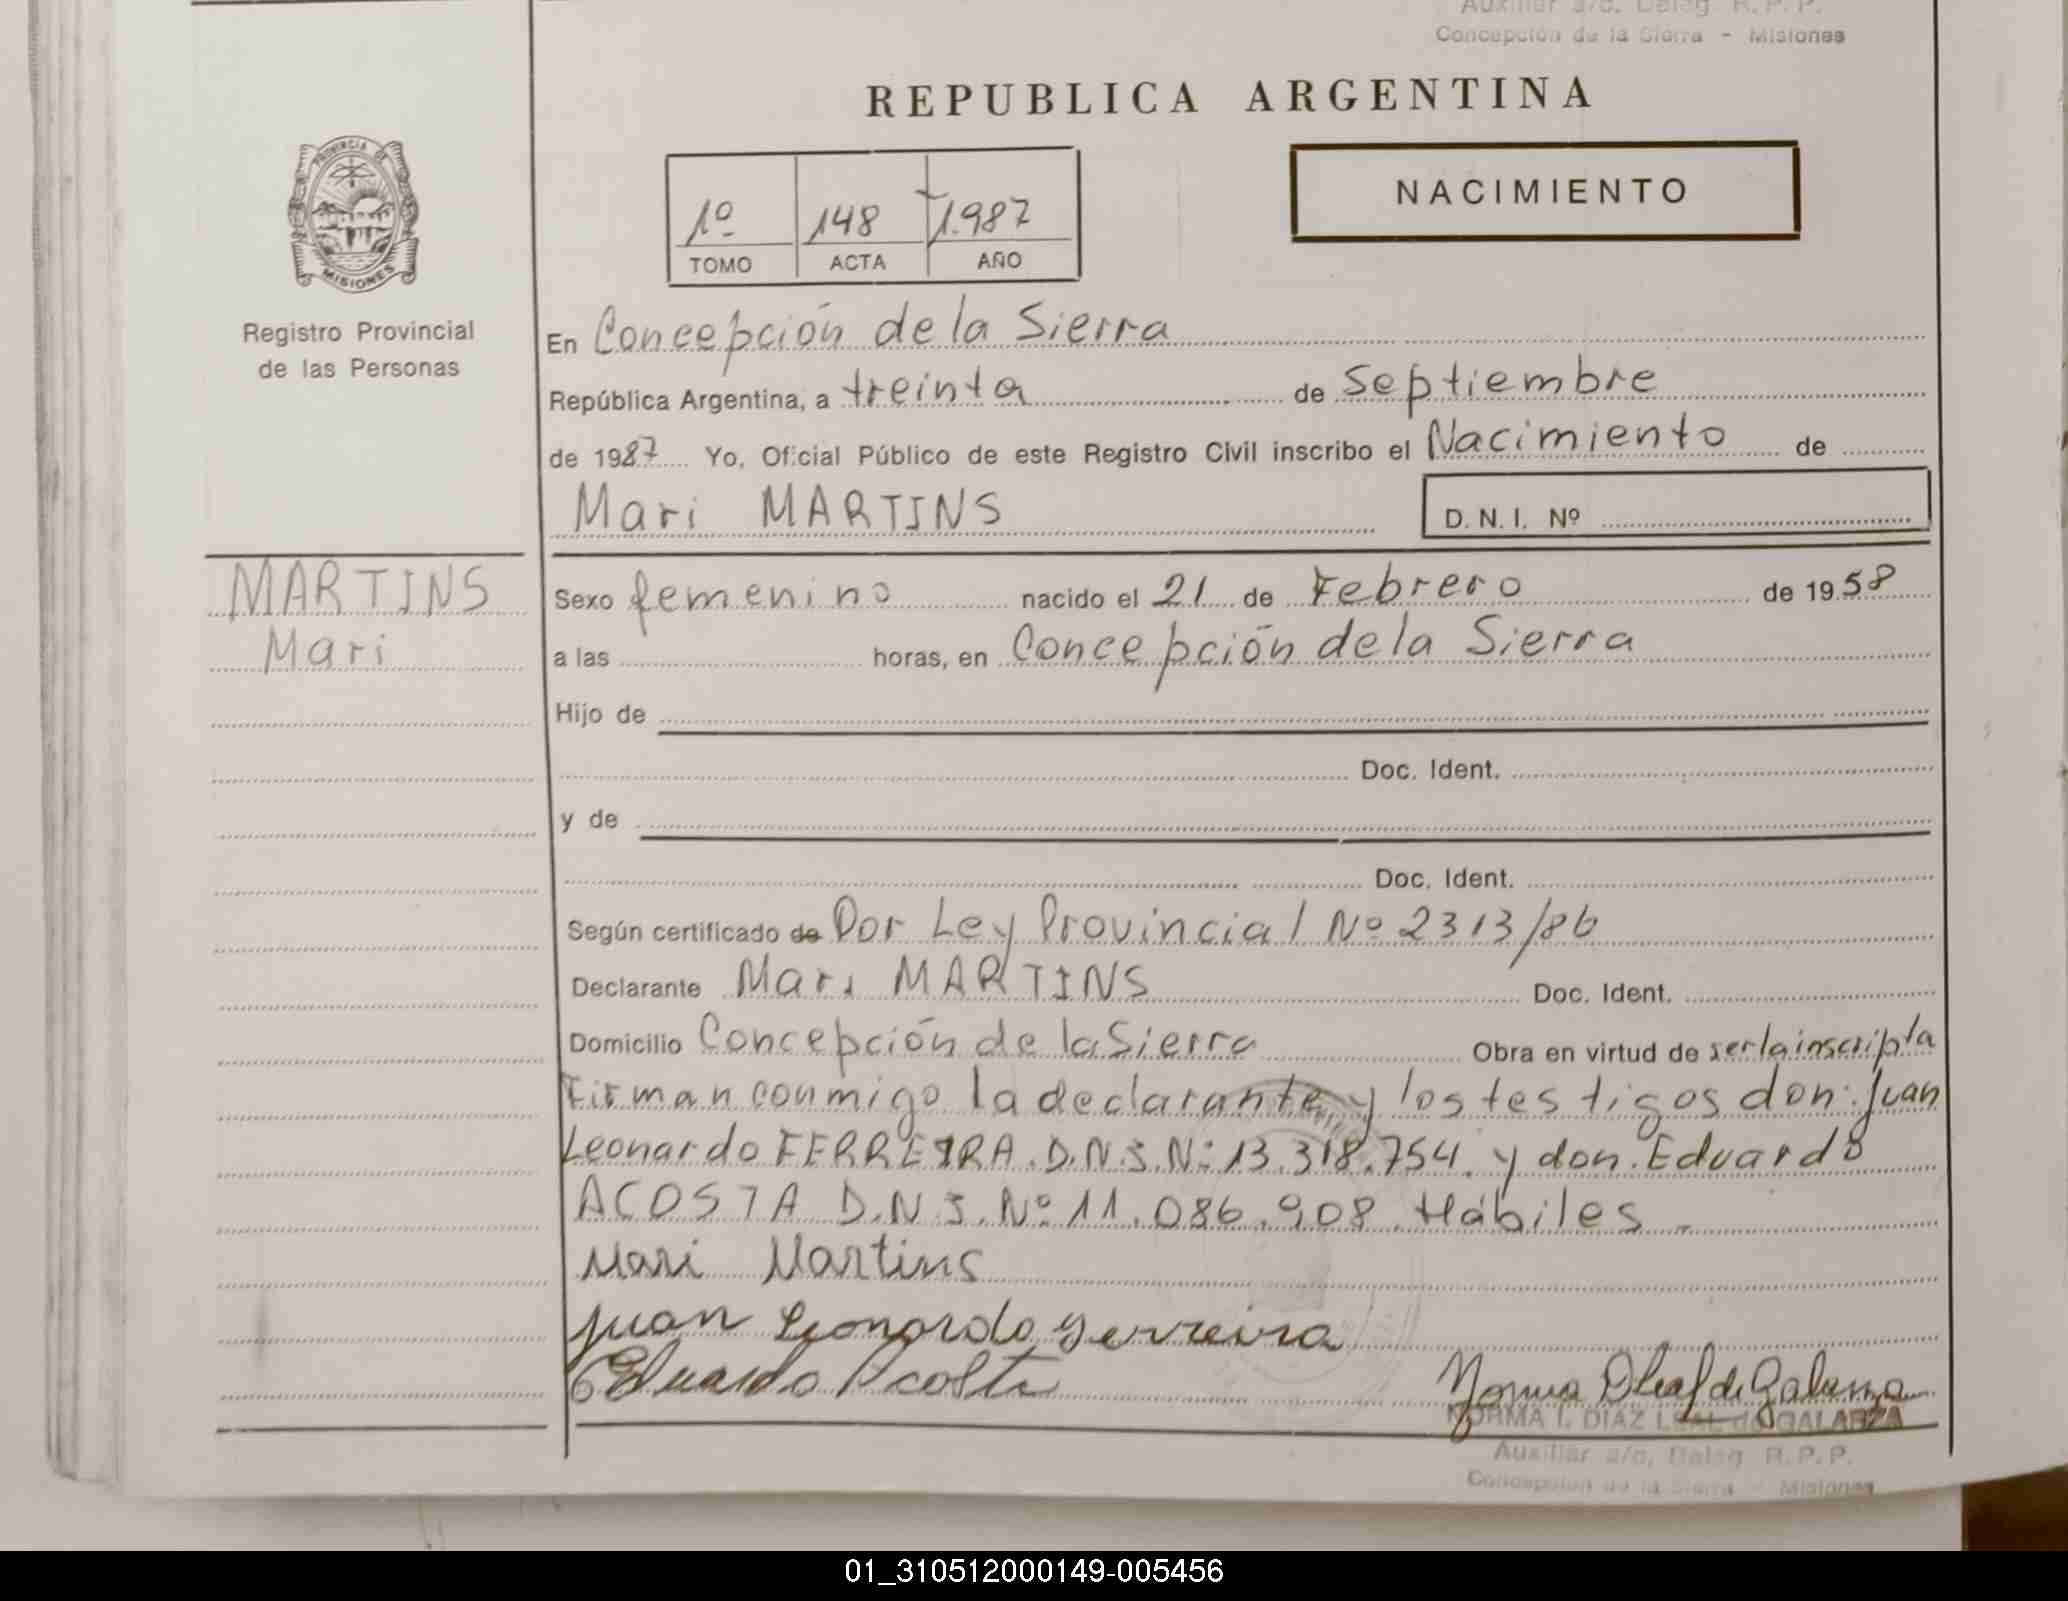 Auxiliar a/c. Deleg R.P.P.
Concepción de la Sierra - Misiones
REPUBLICA ARGENTINA
PROVINCIA DE
MISIONES
Registro Provincial
de las Personas
1º 148 1.987
TOMO ACTA AÑO
NACIMIENTO
En Concepción de la Sierra
República Argentina, a treinta de Septiembre
de 1987 Yo, Oficial Público de este Registro Civil inscribo el Nacimiento de
Mari MARTINS D.N.I. Nº
MARTINS
Mari
Sexo femenino nacido el 21 de Febrero de 1958
a las horas, en Concepción de la Sierra
Hijo de
Doc. Ident.
y de
Doc. Ident.
Según certificado de Por Ley Provincial Nº 2313/86
Declarante Mari MARTINS Doc. Ident.
Domicilio Concepción de la Sierra Obra en virtud de ser la inscripta
Firman conmigo la declarante y los testigos don: Juan
Leonardo FERREIRA D.N.I. Nº 13.318.754. y don Eduardo
ACOSTA D.N.I. Nº 11.086.908. Hábiles -
Mari Martins
Juan Leonardo Ferreira
Eduardo Acosta
Norma D Leal de Galarza
NORMA I. DIAZ LEAL de GALARZA
Auxiliar a/c. Deleg R.P.P.
Concepción de la Sierra - Misiones
01_310512000149-005456